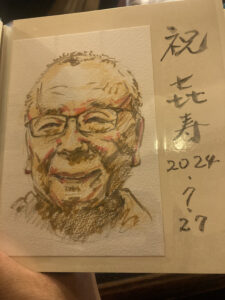 祝
㐂寿
2024.7.27